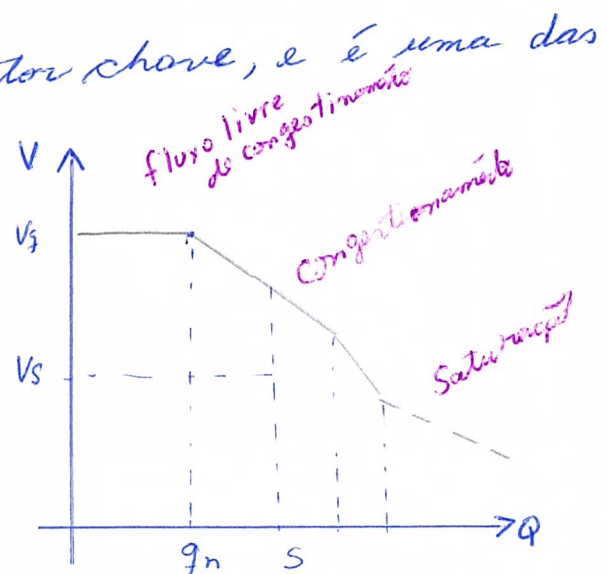 tor chave, e é uma das
fluxo livre
de congestinamento
V
Vf
congestionamento
Vs
Saturação
Q
qn
S